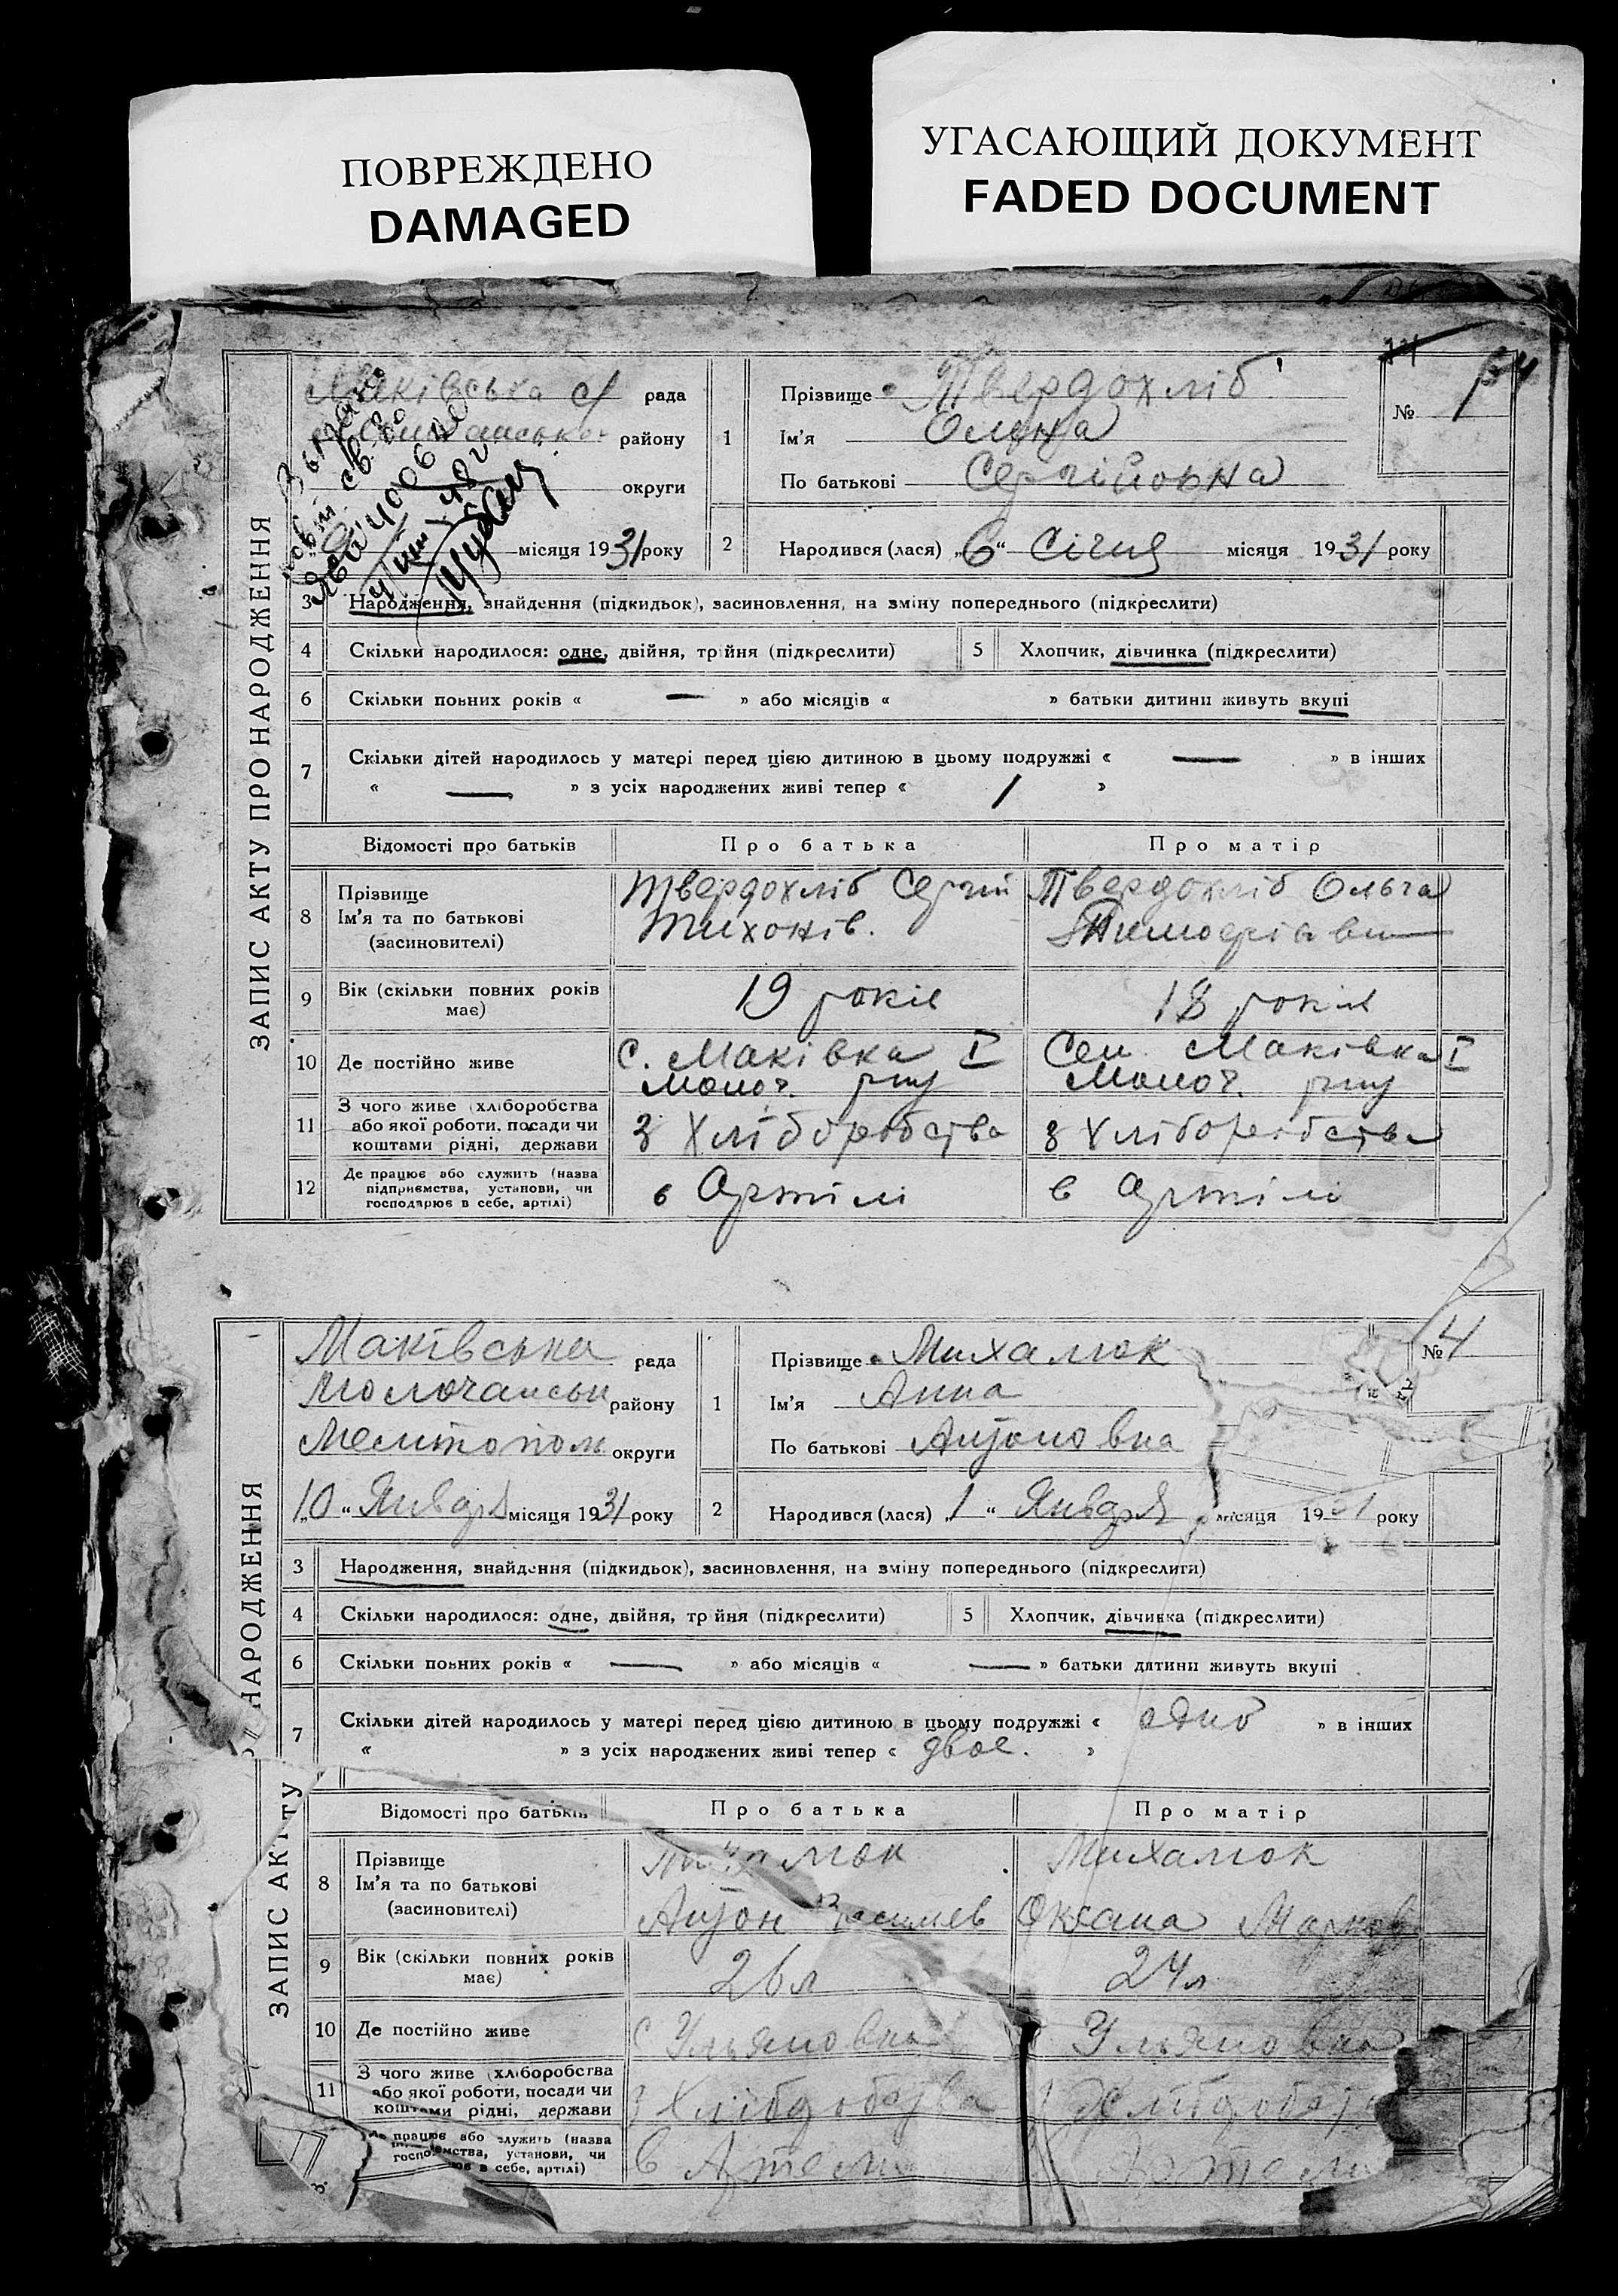 ПОВРЕЖДЕНО
DAMAGED
УГАСАЮЩИЙ ДОКУМЕНТ
FADED DOCUMENT
ЗАПИС АКТУ ПРО НАРОДЖЕННЯ
Маківська с/ рада
району
округи
місяця 1931 року
1 Прізвище Твердохліб
Ім'я Олена
По батькові Сергійовна
№
2 Народився (лася) „6“ Січня місяця 1931 року
3 Народження, знайдення (підкидьок), засиновлення, на зміну попереднього (підкреслити)
4 Скільки народилося: одне, двійня, трійня (підкреслити) 5 Хлопчик, дівчинка (підкреслити)
6 Скільки повних років « — » або місяців « » батьки дитини живуть вкупі
7 Скільки дітей народилось у матері перед цією дитиною в цьому подружжі « — » в інших
« — » з усіх народжених живі тепер « / »
Відомості про батьків Про батька Про матір
8 Прізвище Ім'я та по батькові (засновителі)
Твердохліб Сергій Тихонів.
Твердохліб Ольга
9 Вік (скільки повних років має) 19 років 18 років
10 Де постійно живе
с. Маківка I Молоч. р-ну
Сел. Маківка I Молоч. р-ну
11 З чого живе (хліборобства або якої роботи, посади чи коштами рідні, держави
з Хліборобства з Хліборобства
12 Де працює або служить (назва підприємства, установи, чи господарює в себе, артілі)
в Артілі в Артілі
ЗАПИС АКТУ НАРОДЖЕННЯ
Маківська рада
Молочанськ району
Мелитопол округи
„10“ Января місяця 1931 року
1 Прізвище Михалюк
Ім'я Анна
По батькові Антоновна
№ 4
2 Народився (лася) „1“ Января місяця 1931 року
3 Народження, знайдення (підкидьок), засиновлення, на зміну попереднього (підкреслити)
4 Скільки народилося: одне, двійня, трійня (підкреслити) 5 Хлопчик, дівчинка (підкреслити)
6 Скільки повних років « — » або місяців « — » батьки дитини живуть вкупі
7 Скільки дітей народилось у матері перед цією дитиною в цьому подружжі « одно » в інших
« » з усіх народжених живі тепер « двое. »
Відомості про батьків Про батька Про матір
8 Прізвище Ім'я та по батькові (засиновителі)
Михалюк Антон Василев
Михалюк Оксана Марков
9 Вік (скільки повних років має) 26 л 24 л
10 Де постійно живе с Ульяновка Ульяновка
11 З чого живе (хліборобства або якої роботи, посади чи коштами рідні, держави
працює або служить (назва установи, чи в себе, артілі)
в Артели Артели